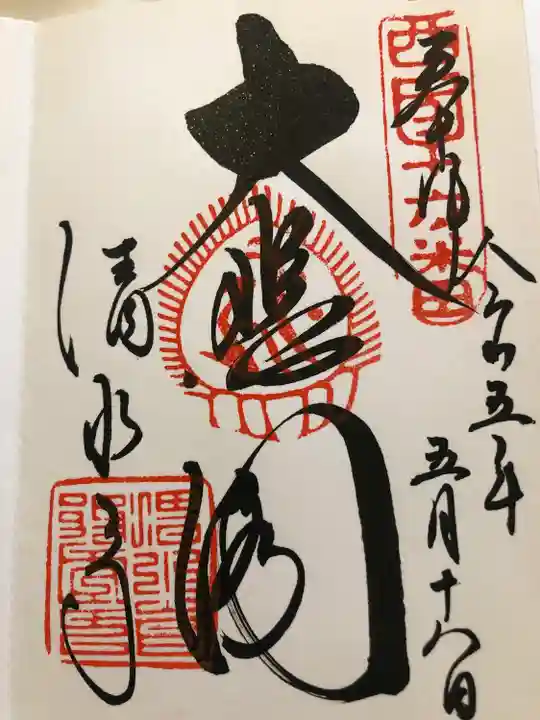 奉拝
令和五年
五月十八日
西国十六番
大悲閣
清水寺